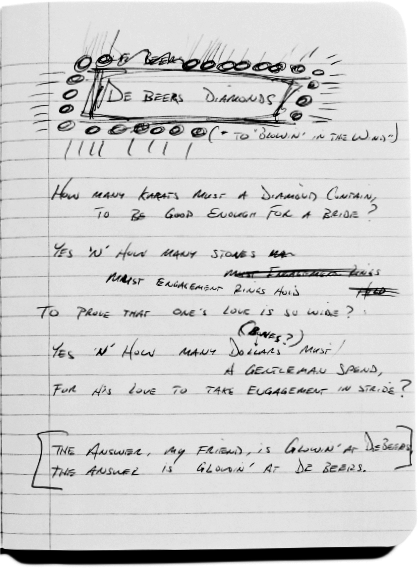 DE BEERS
DE BEERS DIAMONDS
(- TO "BLOWIN' IN THE WIND")
HOW MANY KARATS MUST A DIAMOND CONTAIN,
TO BE GOOD ENOUGH FOR A BRIDE?
YES 'N' HOW MANY STONES
MUST ENGAGEMENT RINGS
MUST ENGAGEMENT RINGS HOLD
TO PROVE THAT ONE'S LOVE IS SO WIDE?
(BONES?)
YES 'N' HOW MANY DOLLARS MUST
A GENTLEMAN SPEND,
FOR HIS LOVE TO TAKE ENGAGEMENT IN STRIDE?
THE ANSWER, MY FRIEND, IS GLOWIN' AT DEBEERS,
THE ANSWER IS GLOWIN' AT DE BEERS.